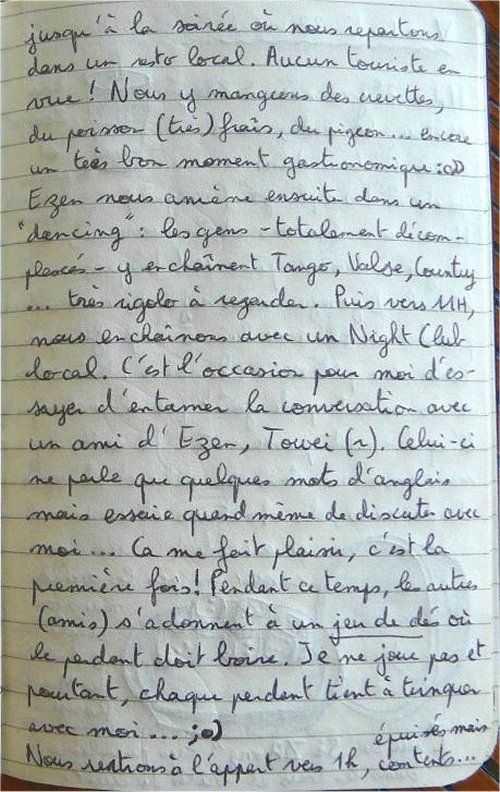 jusqu'à la soirée où nous repartons
dans un resto local. Aucun touriste en
vue ! Nous y mangeons des crevettes,
du poisson (très) frais, du pigeon... encore
un très bon moment gastronomique :o))
Ezen nous amène ensuite dans un
"dancing" : les gens - totalement décom-
plexés - y enchaînent Tango, Valse, Country
... très rigolo à regarder. Puis vers 11H,
nous enchaînons avec un Night Club
local. C'est l'occasion pour moi d'es-
sayer d'entamer la conversation avec
un ami d'Ezen, Towei (~). Celui-ci
ne parle que quelques mots d'anglais
mais essaie quand même de discuter avec
moi... Ca me fait plaisir, c'est la
première fois ! Pendant ce temps, les autres
(amis) s'adonnent à un jeu de dés où
le perdant doit boire. Je ne joue pas et
pourtant, chaque perdant tient à trinquer
avec moi... ;o)
Nous rentrons à l'appart vers 1h, épuisés mais contents...